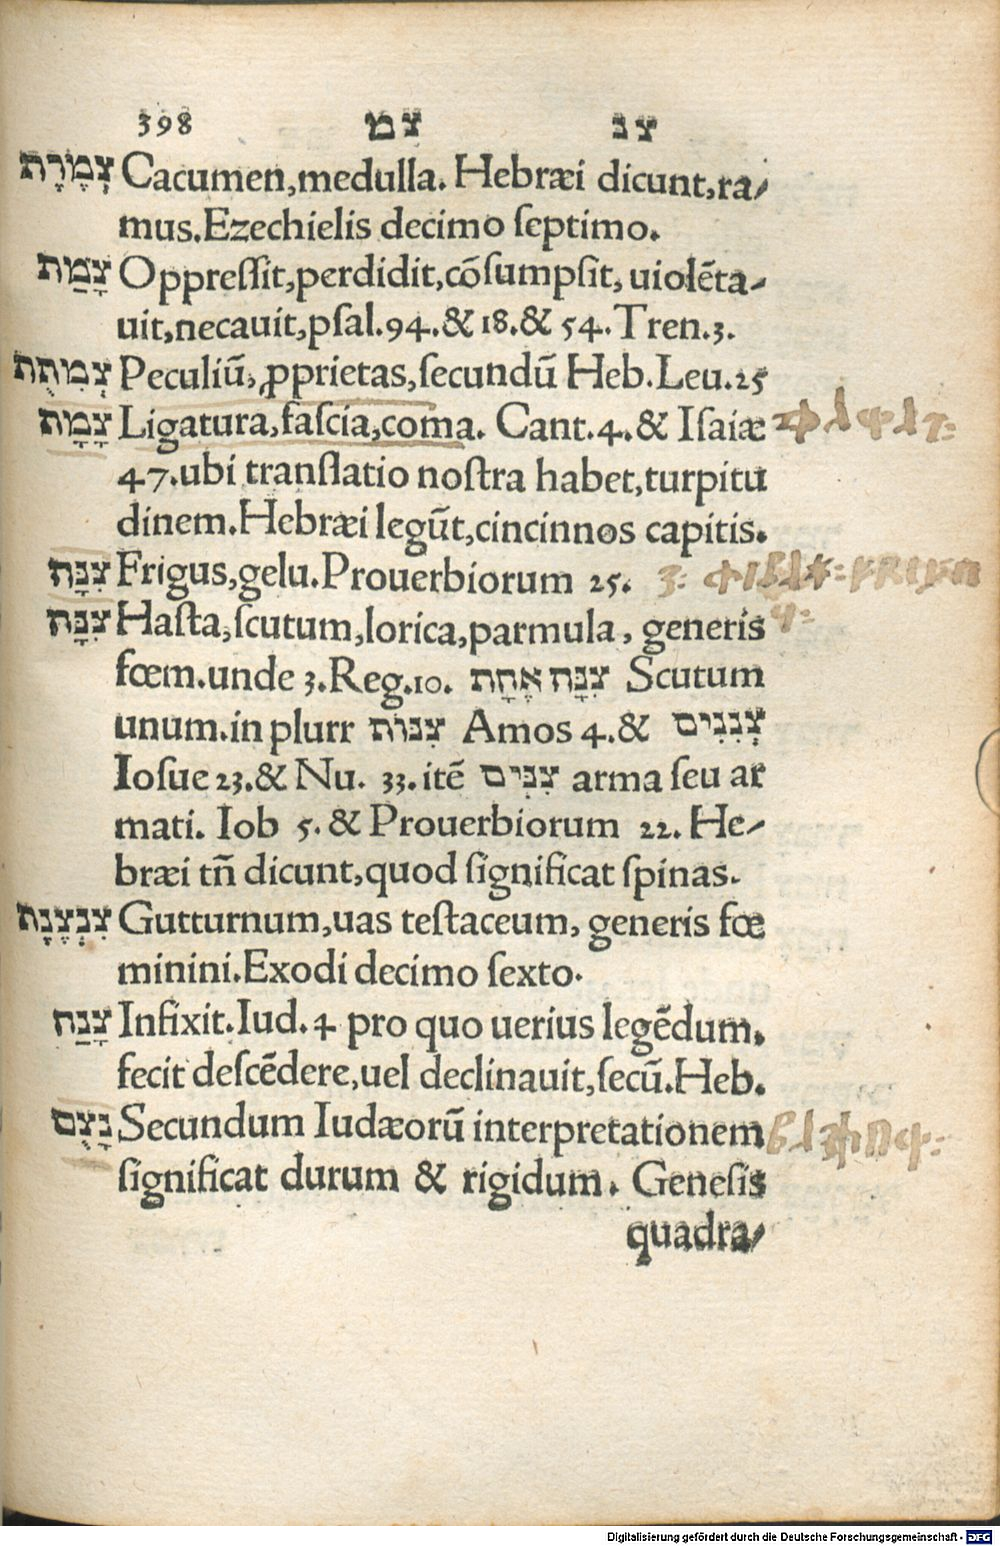 398 צמ צנ
צְמֶרֶת Cacumen,medulla. Hebræi dicunt,ra⸗
mus.Ezechielis decimo ſeptimo.
צָמַת Oppreſſit,perdidit,cōſumpſit, uiolēta⸗
uit,necauit,pſal.94.& 18.& 54.Tren.3.
צְמִתֻת Peculiū, ꝓprietas,ſecundū Heb.Leu.25
צָמָת Ligatura,faſcia,coma. Cant.4.& Iſaiæ
47.ubi tranſlatio noſtra habet,turpitu
dinem.Hebræi legūt,cincinnos capitis.
צִנָּה Frigus,gelu.Prouerbiorum 25.
צִנָּה Haſta,ſcutum,lorica,parmula, generis
fœm.unde 3.Reg.10. צִנָּה אֶחָת Scutum
unum.in plurr צִנּוֹת Amos 4.& צְנִנִים
Ioſue 23.& Nu. 33.itē צִנִּים arma ſeu ar
mati. Iob 5. & Prouerbiorum 22. He⸗
bræi tñ dicunt,quod ſignificat ſpinas.
צִנְצֶנֶת Gutturnum,uas teſtaceum, generis fœ
minini.Exodi decimo ſexto.
צָנַח Infixit.Iud.4 pro quo uerius legēdum.
fecit deſcēdere,uel declinauit,ſecū.Heb.
Secundum Iudæorū interpretationem
ſignificat durum & rigidum. Geneſis
quadra⸗
Digitalisierung gefördert durch die Deutsche Forschungsgemeinschaft - DFG